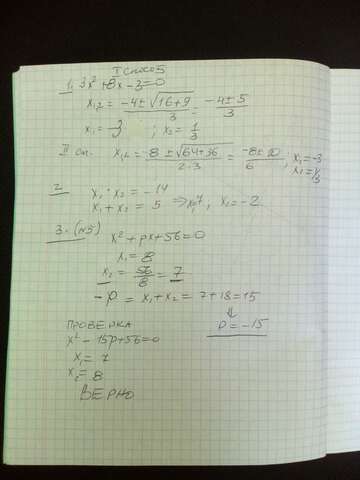 I способ
1. 3x² + 8x - 3 = 0
x₁,₂ = (-4 ± √(16+9))/3 = (-4 ± 5)/3
x₁ = -3 ; x₂ = 1/3
II сп. x₁,₂ = (-8 ± √(64+36))/(2·3) = (-8 ± 10)/6, x₁ = -3
x₂ = 1/3
2. x₁ · x₂ = -14
x₁ + x₂ = 5 ⇒ x₁ = 7, x₂ = -2
3. (N5)
x² + px + 56 = 0
x₁ = 8
x₂ = 56/8 = 7
-p = x₁ + x₂ = 7 + 18 = 15
⇓
ПРОВЕРКА p = -15
x² - 15p + 56 = 0
x₁ = 7
x₂ = 8
ВЕРНО